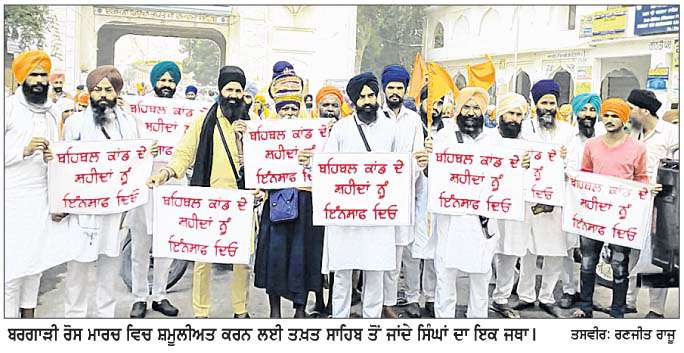 ਬਹਿਬਲ ਕਾਂਡ ਦੇ
ਸ਼ਹੀਦਾਂ ਨੂੰ
ਇੰਨਸਾਫ ਦਿਓ
ਬਹਿਬਲ ਕਾਂਡ ਦੇ
ਸ਼ਹੀਦਾਂ ਨੂੰ
ਇੰਨਸਾਫ ਦਿਓ
ਬਹਿਬਲ ਕਾਂਡ ਦੇ
ਸ਼ਹੀਦਾਂ ਨੂੰ
ਇੰਨਸਾਫ ਦਿਓ
ਬਹਿਬਲ ਕਾਂਡ ਦੇ
ਸ਼ਹੀਦਾਂ ਨੂੰ
ਇੰਨਸਾਫ ਦਿਓ
ਬਹਿਬਲ ਕਾਂਡ ਦੇ
ਸ਼ਹੀਦਾਂ ਨੂੰ
ਇੰਨਸਾਫ ਦਿਓ
ਬਹਿਬਲ ਕਾਂਡ ਦੇ
ਸ਼ਹੀਦਾਂ ਨੂੰ
ਇੰਨਸਾਫ ਦਿਓ
ਬਰਗਾੜੀ ਰੋਸ ਮਾਰਚ ਵਿਚ ਸ਼ਮੂਲੀਅਤ ਕਰਨ ਲਈ ਤਖ਼ਤ ਸਾਹਿਬ ਤੋਂ ਜਾਂਦੇ ਸਿੰਘਾਂ ਦਾ ਇਕ ਜਥਾ। ਤਸਵੀਰ: ਰਣਜੀਤ ਰਾਜੂ